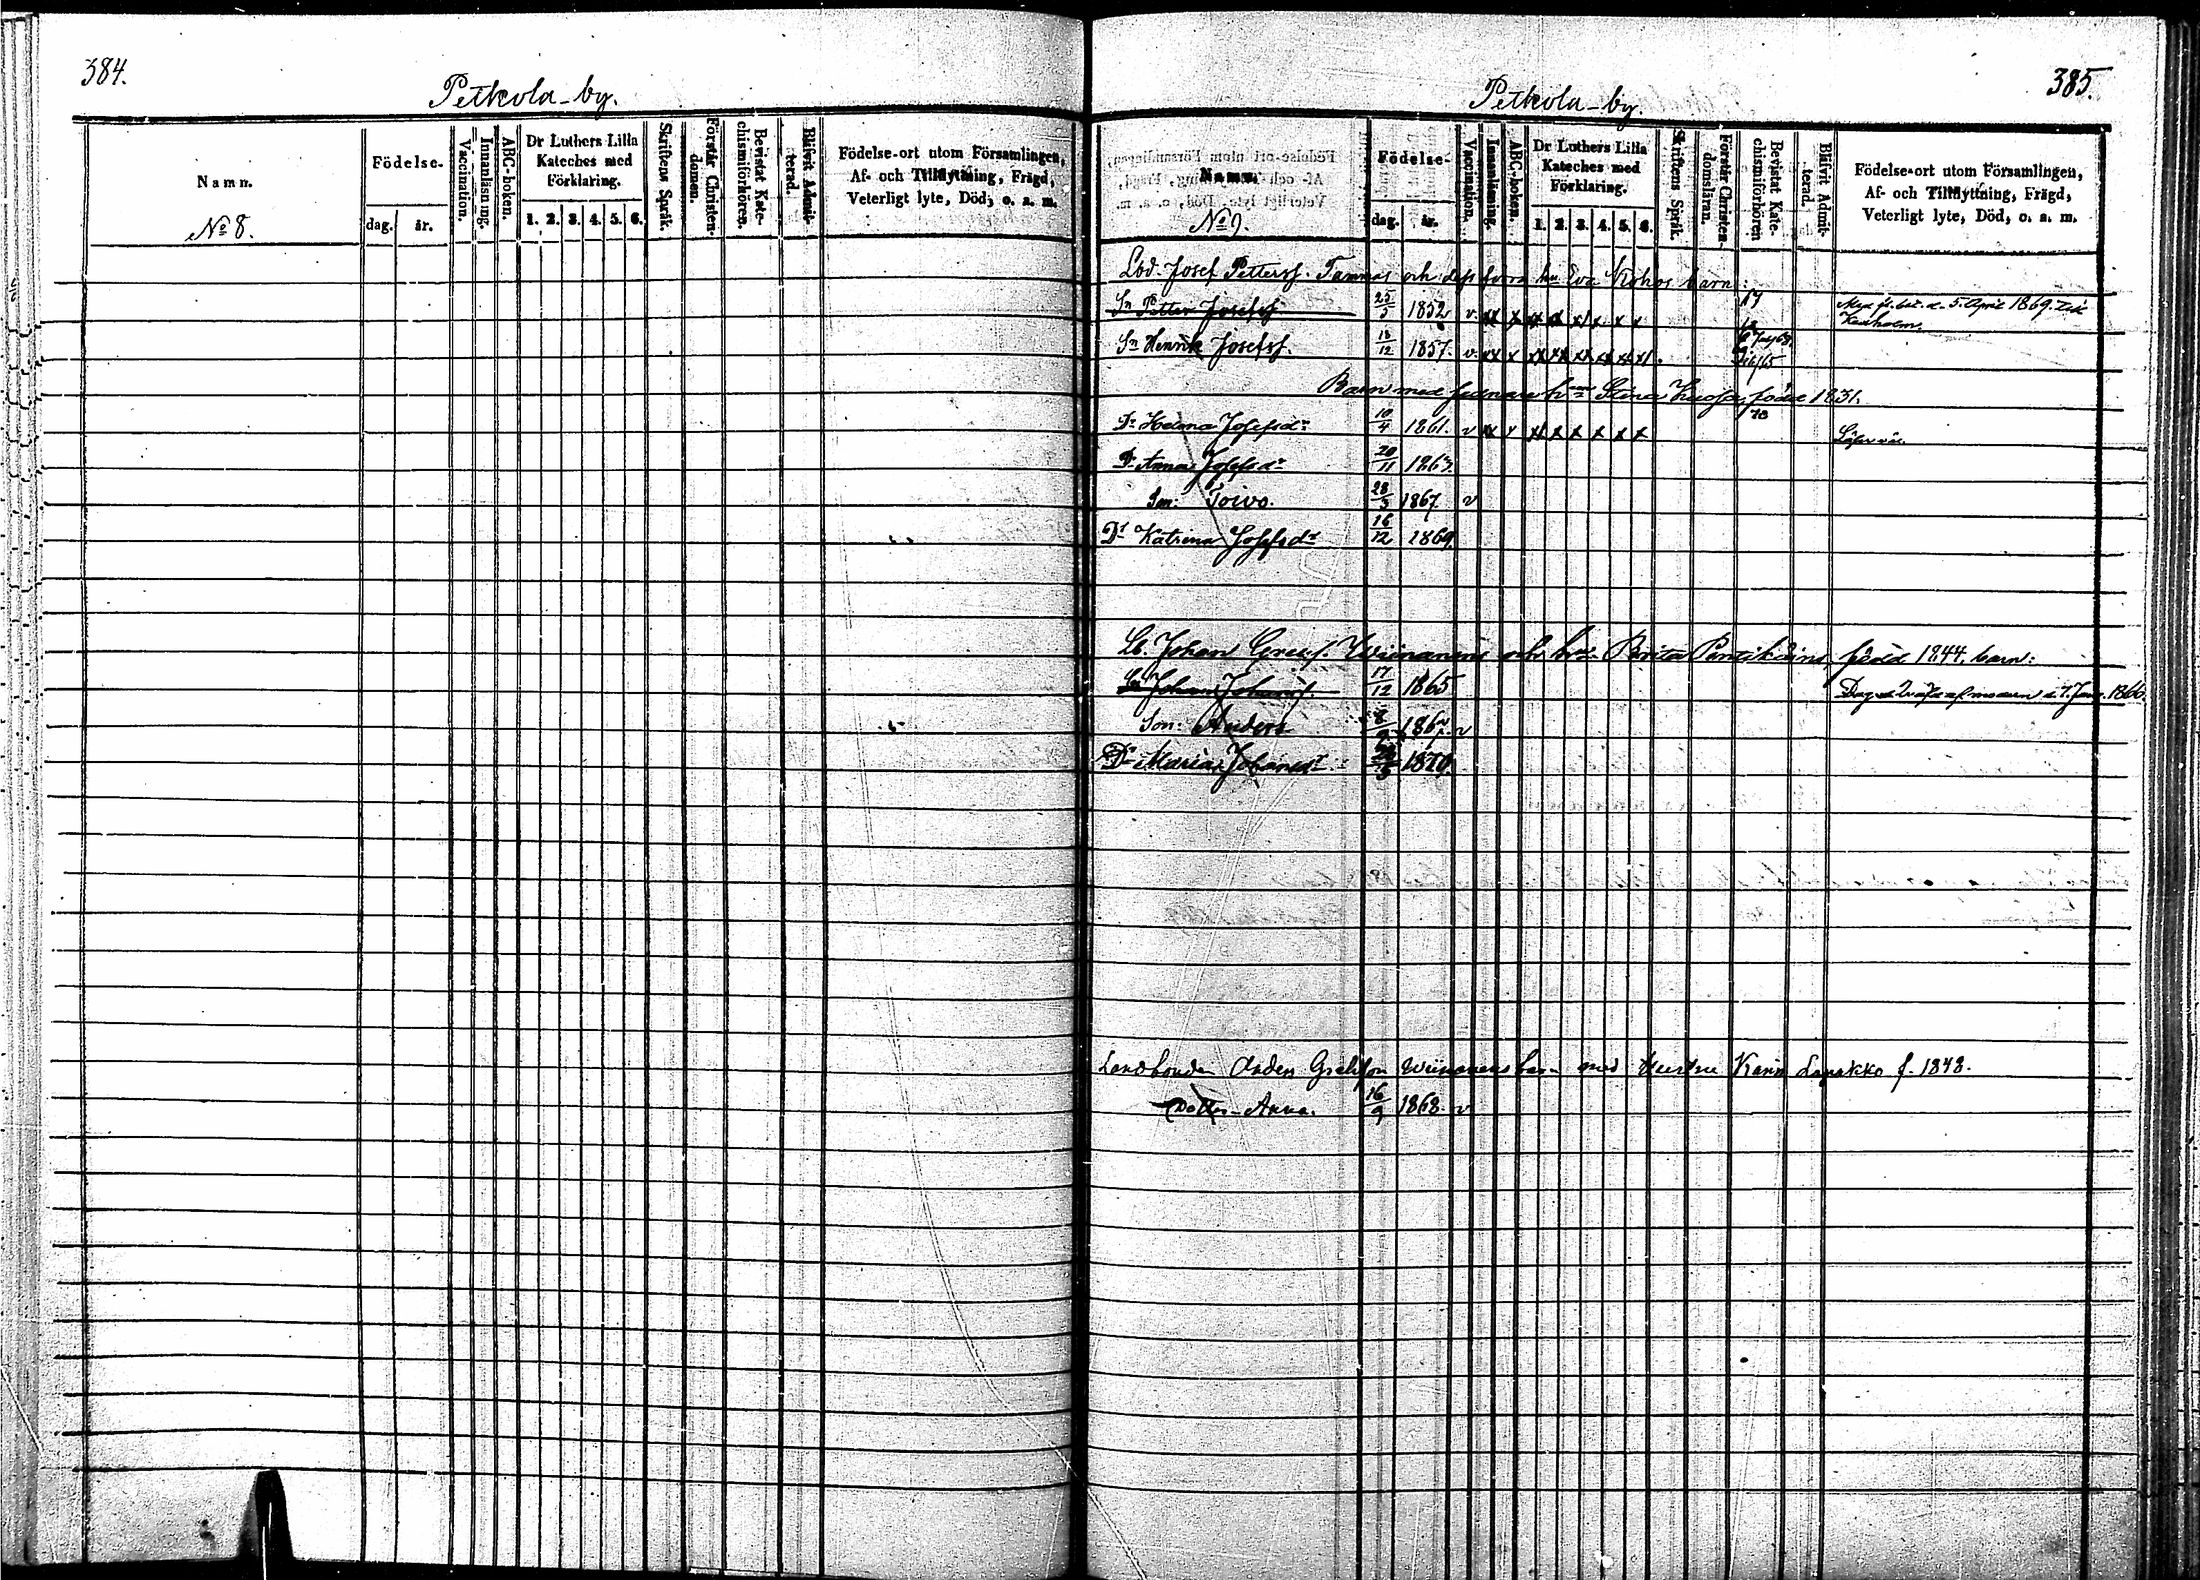 384.
Petkola-by.
Namn.
No 8.
Födelse-
dag.
år.
Vaccination.
Innanläsning.
ABC-boken.
Dr Luthers Lilla
Kateches med
Förklaring.
1. 2. 3. 4. 5. 6.
Skriftens Språk.
Förstår Christen-
domen.
Bevistat Kate-
chismiförhören.
Blifvit Admit-
terad.
Födelse-ort utom Församlingen,
Af- och Tillflyttning, Frägd,
Veterligt lyte, Död, o. a. m.
385.
Petkola-by.
Namn.
No 9.
Födelse-
dag.
år.
Vaccination.
Innanläsning.
ABC-boken.
Dr Luthers Lilla
Kateches med
Förklaring.
1. 2. 3. 4. 5. 6.
Skriftens Språk.
Förstår Christen-
domsläran.
Bevistat Kate-
chismiförhören
Blifvit Admit-
terad.
Födelse-ort utom Församlingen,
Af- och Tillflyttning, Frägd,
Veterligt lyte, Död, o. a. m.
Josef Petterss. och förra Eva barn:
Sn Petter Josefss 25/5 1852 v. d. 5. April 1869. till
Kexholm.
Sn Henrik Josefss. 18/12 1857. v.
Barn med Stina född 1831.
Dr Helena Josefsdr 10/4 1861. v
Dr Anna Josefsdr 20/11 1863.
Son: Toivo. 28/5 1867. v
Dr Katrina Josefsdr 16/12 1869.
Lb. Johan och Brita född 1844, barn:
Sn Johan Johanss. 17/12 1865 af modren d. 7. Jan. 1866.
Son: Anders 1867. v
Dr Maria Johansdr 1870.
Landbonden Anders barn med Hustru Karin Lapakko f. 1848.
Dotter Anna. 16/9 1868. v